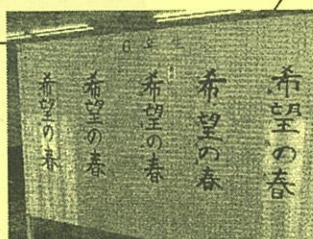 6年生
希望の春
希望の春
希望の春
希望の春
希望の春